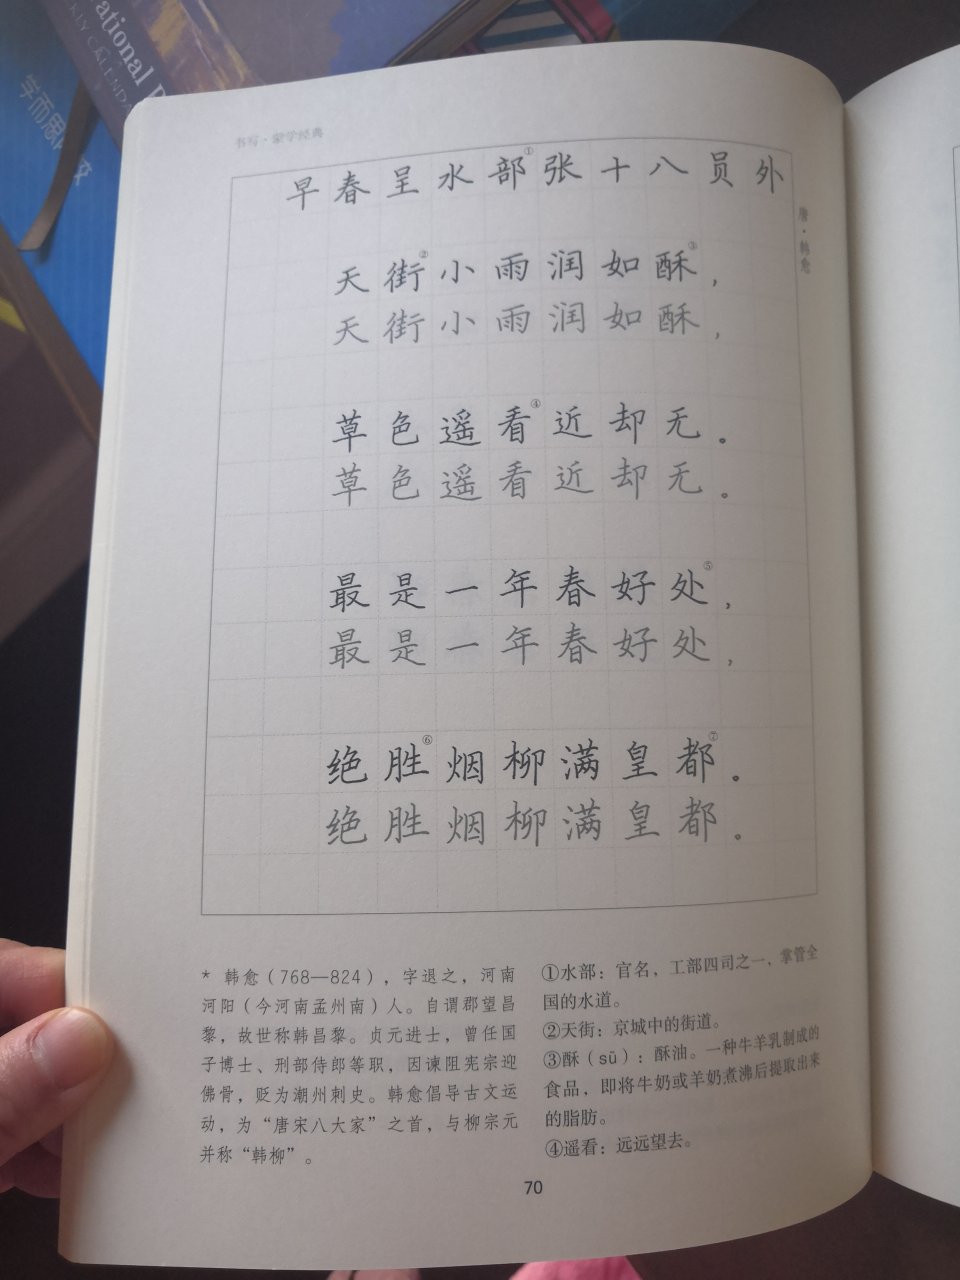 ational
KLY CALENDA
学而思
书写·蒙学经典
早春呈水部①张十八员外
唐·韩愈
天街②小雨润如酥③,
天街小雨润如酥,
草色遥看④近却无。
草色遥看近却无。
最是一年春好处⑤,
最是一年春好处,
绝胜⑥烟柳满皇都⑦。
绝胜烟柳满皇都。
* 韩愈(768—824),字退之,河南
河阳(今河南孟州南)人。自谓郡望昌
黎,故世称韩昌黎。贞元进士,曾任国
子博士、刑部侍郎等职,因谏阻宪宗迎
佛骨,贬为潮州刺史。韩愈倡导古文运
动,为“唐宋八大家”之首,与柳宗元
并称“韩柳”。
①水部:官名,工部四司之一,掌管全
国的水道。
②天街:京城中的街道。
③酥(sū):酥油。一种牛羊乳制成的
食品,即将牛奶或羊奶煮沸后提取出来
的脂肪。
④遥看:远远望去。
70